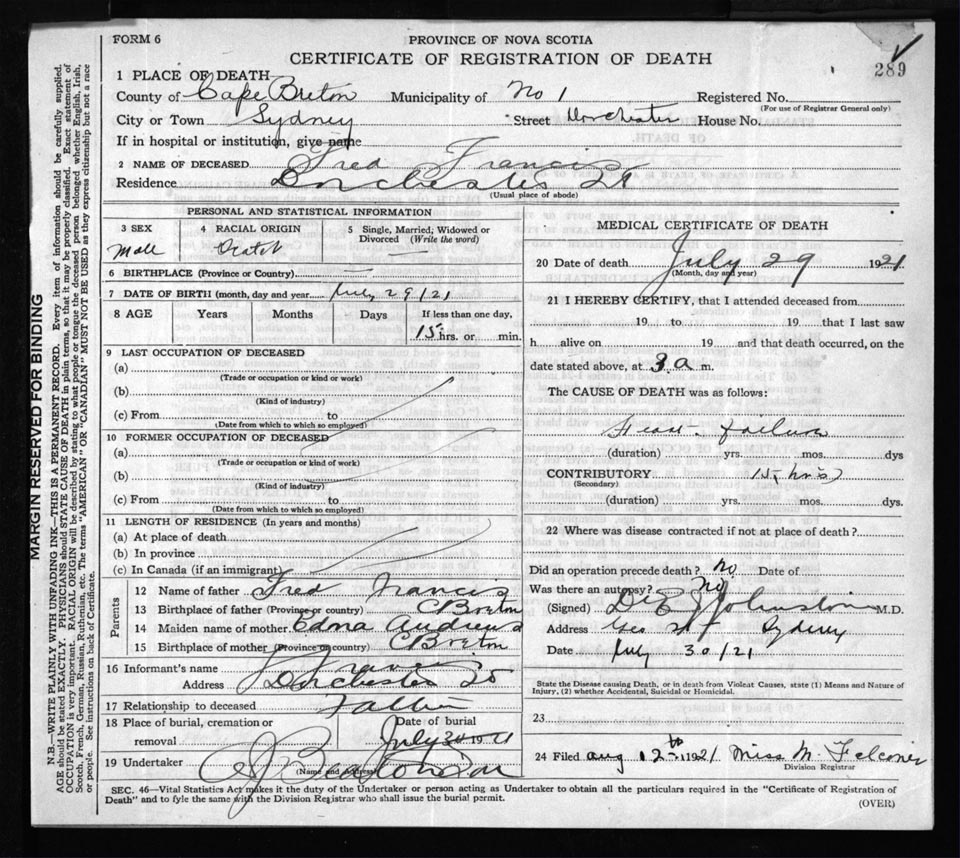 FORM 6
PROVINCE OF NOVA SCOTIA
CERTIFICATE OF REGISTRATION OF DEATH
289
MARGIN RESERVED FOR BINDING
N.B.—WRITE PLAINLY WITH UNFADING INK.—THIS IS A PERMANENT RECORD. Every item of information should be carefully supplied.
AGE should be stated EXACTLY. PHYSICIANS should STATE CAUSE OF DEATH in plain terms, so that it may be properly classified. Exact statement of
OCCUPATION is very important. RACIAL ORIGIN will be described by stating to what people or tongue the deceased person belonged whether English, Irish,
Scotch, French, German, Russian, Ruthenian, etc. The terms "AMERICAN" OR "CANADIAN" MUST NOT BE USED as they express citizenship but not a race
or people. See instructions on back of Certificate.
1 PLACE OF DEATH
County of Cape Breton Municipality of No 1 Registered No.
(For use of Registrar General only)
City or Town Sydney Street Dorchester House No.
If in hospital or institution, give name
2 NAME OF DECEASED Fred Francis
Residence Dorchester St
(Usual place of abode)
PERSONAL AND STATISTICAL INFORMATION
3 SEX Male
4 RACIAL ORIGIN
5 Single, Married, Widowed or Divorced (Write the word) —
6 BIRTHPLACE (Province or Country) —
7 DATE OF BIRTH (month, day and year July 29/21
8 AGE Years Months Days If less than one day,
15 hrs. or min.
9 LAST OCCUPATION OF DECEASED
(a)
(Trade or occupation or kind or work)
(b)
(Kind of industry)
(c) From to
(Date from which to which so employed)
10 FORMER OCCUPATION OF DECEASED
(a)
(Trade or occupation or kind of work)
(b)
(Kind of industry)
(c) From to
(Date from which to which so employed)
11 LENGTH OF RESIDENCE (In years and months)
(a) At place of death
(b) In province
(c) In Canada (if an immigrant)
Parents
12 Name of father Fred Francis
13 Birthplace of father (Province or country) C Breton
14 Maiden name of mother Edna Andrews
15 Birthplace of mother (Province or country) C Breton
16 Informant's name Francis
Address Dorchester St
17 Relationship to deceased Father
18 Place of burial, cremation or removal
Date of burial
July 30 1921
19 Undertaker
(Name and Address)
MEDICAL CERTIFICATE OF DEATH
20 Date of death July 29 1921
(Month, day and year)
21 I HEREBY CERTIFY, that I attended deceased from
19 to 19 that I last saw
h alive on 19 and that death occurred, on the
date stated above, at 3 a m.
The CAUSE OF DEATH was as follows:
Heart failure
(duration) yrs. mos. dys
CONTRIBUTORY 15 hrs
(Secondary)
(duration) yrs. mos. dys.
22 Where was disease contracted if not at place of death?
Did an operation precede death? no Date of
Was there an autopsy? no
(Signed) Johnston M.D.
Address Geo St Sydney
Date July 30/21
State the Disease causing Death, or in death from Violeat Causes, state (1) Means and Nature of
Injury, (2) whether Accidental, Suicidal or Homicidal.
23
24 Filed Aug 12th 1921 Miss M. Falconer
Division Registrar
SEC. 46—Vital Statistics Act makes it the duty of the Undertaker or person acting as Undertaker to obtain all the particulars required in the "Certificate of Registration of
Death" and to fyle the same with the Division Registrar who shall issue the burial permit.
(OVER)